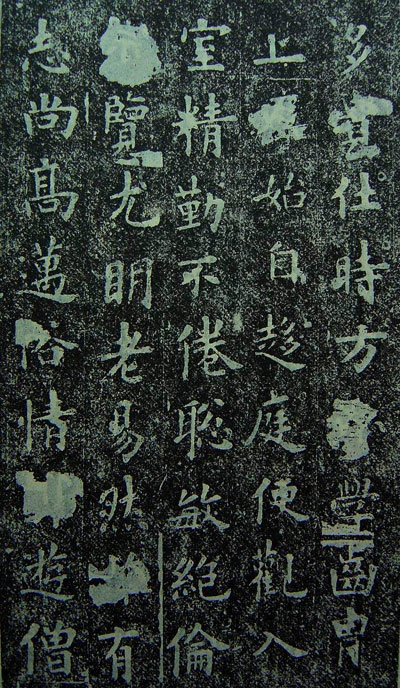 多仕時方學齒胄
上庠始自趍庭便觀入
室精勤不倦聰敏絕倫
覽尤明老易然有
志尚髙邁俗情遊僧